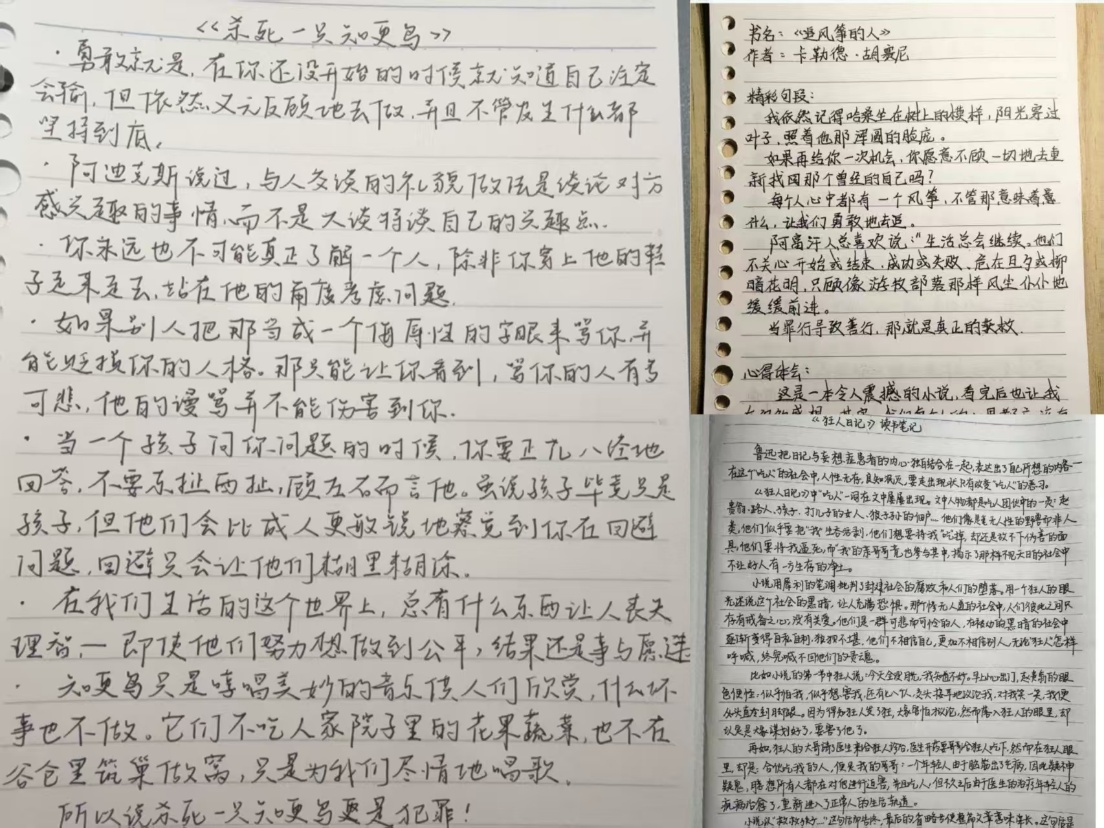 《杀死一只知更鸟》
·勇敢就是,在你还没开始的时候就知道自己注定
会输,但依然义无反顾地去做,并且不管发生什么都
坚持到底。
·阿迪克斯说过,与人交谈的礼貌做法是谈论对方
感兴趣的事情,而不是大谈特谈自己的兴趣点.
·你永远也不可能真正了解一个人,除非你穿上他的鞋
子走来走去,站在他的角度考虑问题.
·如果别人把那当成一个侮辱性的字眼来骂你,并
能贬损你的人格。那只能让你看到,骂你的人有多
可悲,他的谩骂并不能伤害到你.
·当一个孩子问你问题的时候,你要正儿八经地
回答,不要东扯西扯,顾左右而言他。虽说孩子毕竟只是
孩子,但他们会比成人更敏锐地察觉到你在回避
问题,回避只会让他们糊里糊涂.
·在我们生活的这个世界上,总有什么东西让人丧失
理智,一即使他们努力想做到公平,结果还是事与愿违
·知更鸟只是哼唱美妙的音乐供人们欣赏,什么坏
事也不做。它们不吃人家院子里的花果蔬菜,也不在
谷仓里筑巢做窝,只是为我们尽情地唱歌.
所以说杀死一只知更鸟更是犯罪!
书名:《追风筝的人》
作者:卡勒德·胡赛尼
精彩句段:
我依然记得哈桑坐在树上的模样,阳光穿过
叶子,照着他那浑圆的脸庞。
如果再给你一次机会,你愿意不顾一切地去重
新找回那个曾经的自己吗?
每个人心中都有一个风筝,不管那意味着
什么,让我们勇敢地去追。
阿富汗人总喜欢说:"生活总会继续。他们
不关心开始或结束、成功或失败、危在旦夕或柳
暗花明,只顾像游牧部落那样风尘仆仆地
缓缓前进。
当罪行导致善行,那就是真正的救赎.
心得体会:
这是一本令人震撼的小说,看完后也让我
《狂人日记》读书笔记
鲁迅把日记与妄想症患者的内心独白结合在一起,表达出了自己所想的内容一
在这个"吃人"的社会中,人性无存,良知泯灭,要走出现状只有改变"吃人"的恶习。
《狂人日记》中"吃人"一词在文中屡屡出现。文中人物都是吃人团伙中的一员:赵
贵翁、路人、孩子、打儿子的女人、狼子村的佃户…他们像是毫无人性的野兽而非人
类,他们似乎要把"我"生吞活剥,他们想要将我吃掉,却还是放不下伪善的面
具,他们要将我逼死,而"我"的亲哥哥竟也参与其中,揭示了那样不见天日的社会中
不让好人有一方生存的净土。
小说用犀利的笔调批判了封建社会的腐败和人们的堕落。用一个狂人的眼
光还说这个社会的黑暗,让人充满恐惧。那个伟人真的社会中,人们彼此之间只
存有戒备之心,没有关爱。他们是一群可悲而可怜的人,在被动的黑暗的社会中
逐渐变得自私自利、狼狈不堪。他们不相信自己,更加不相信别人,无论狂人怎样
呼喊,终究喊不回他们的灵魂。
比如小说的第一节中狂人说:今天全没月光,我知道不妙。早上小心出门,赵贵翁的眼
色便怪:似乎怕我,似乎想害我,还有七八个人,交头接耳地议论我,对我笑一笑,我便
从头直冷到脚跟。因为得知狂人发了狂,大家害怕、议论,然而落入狂人的眼里,却
以为是大家谋划好了,要害了他了。
再如,狂人的大哥请了医生来给狂人诊治,医生开药要哥哥给狂人吃下,然而在狂人眼
里,却是:合伙吃我的人,便是我的哥哥:一个年轻人由于脑筋出了毛病,因此疑神
疑鬼,臆想所有人都在对他进行迫害,并且吃人,但不久之后由于医生的治疗年轻人的
疾病治愈了,重新进入了正常人的生活轨道。